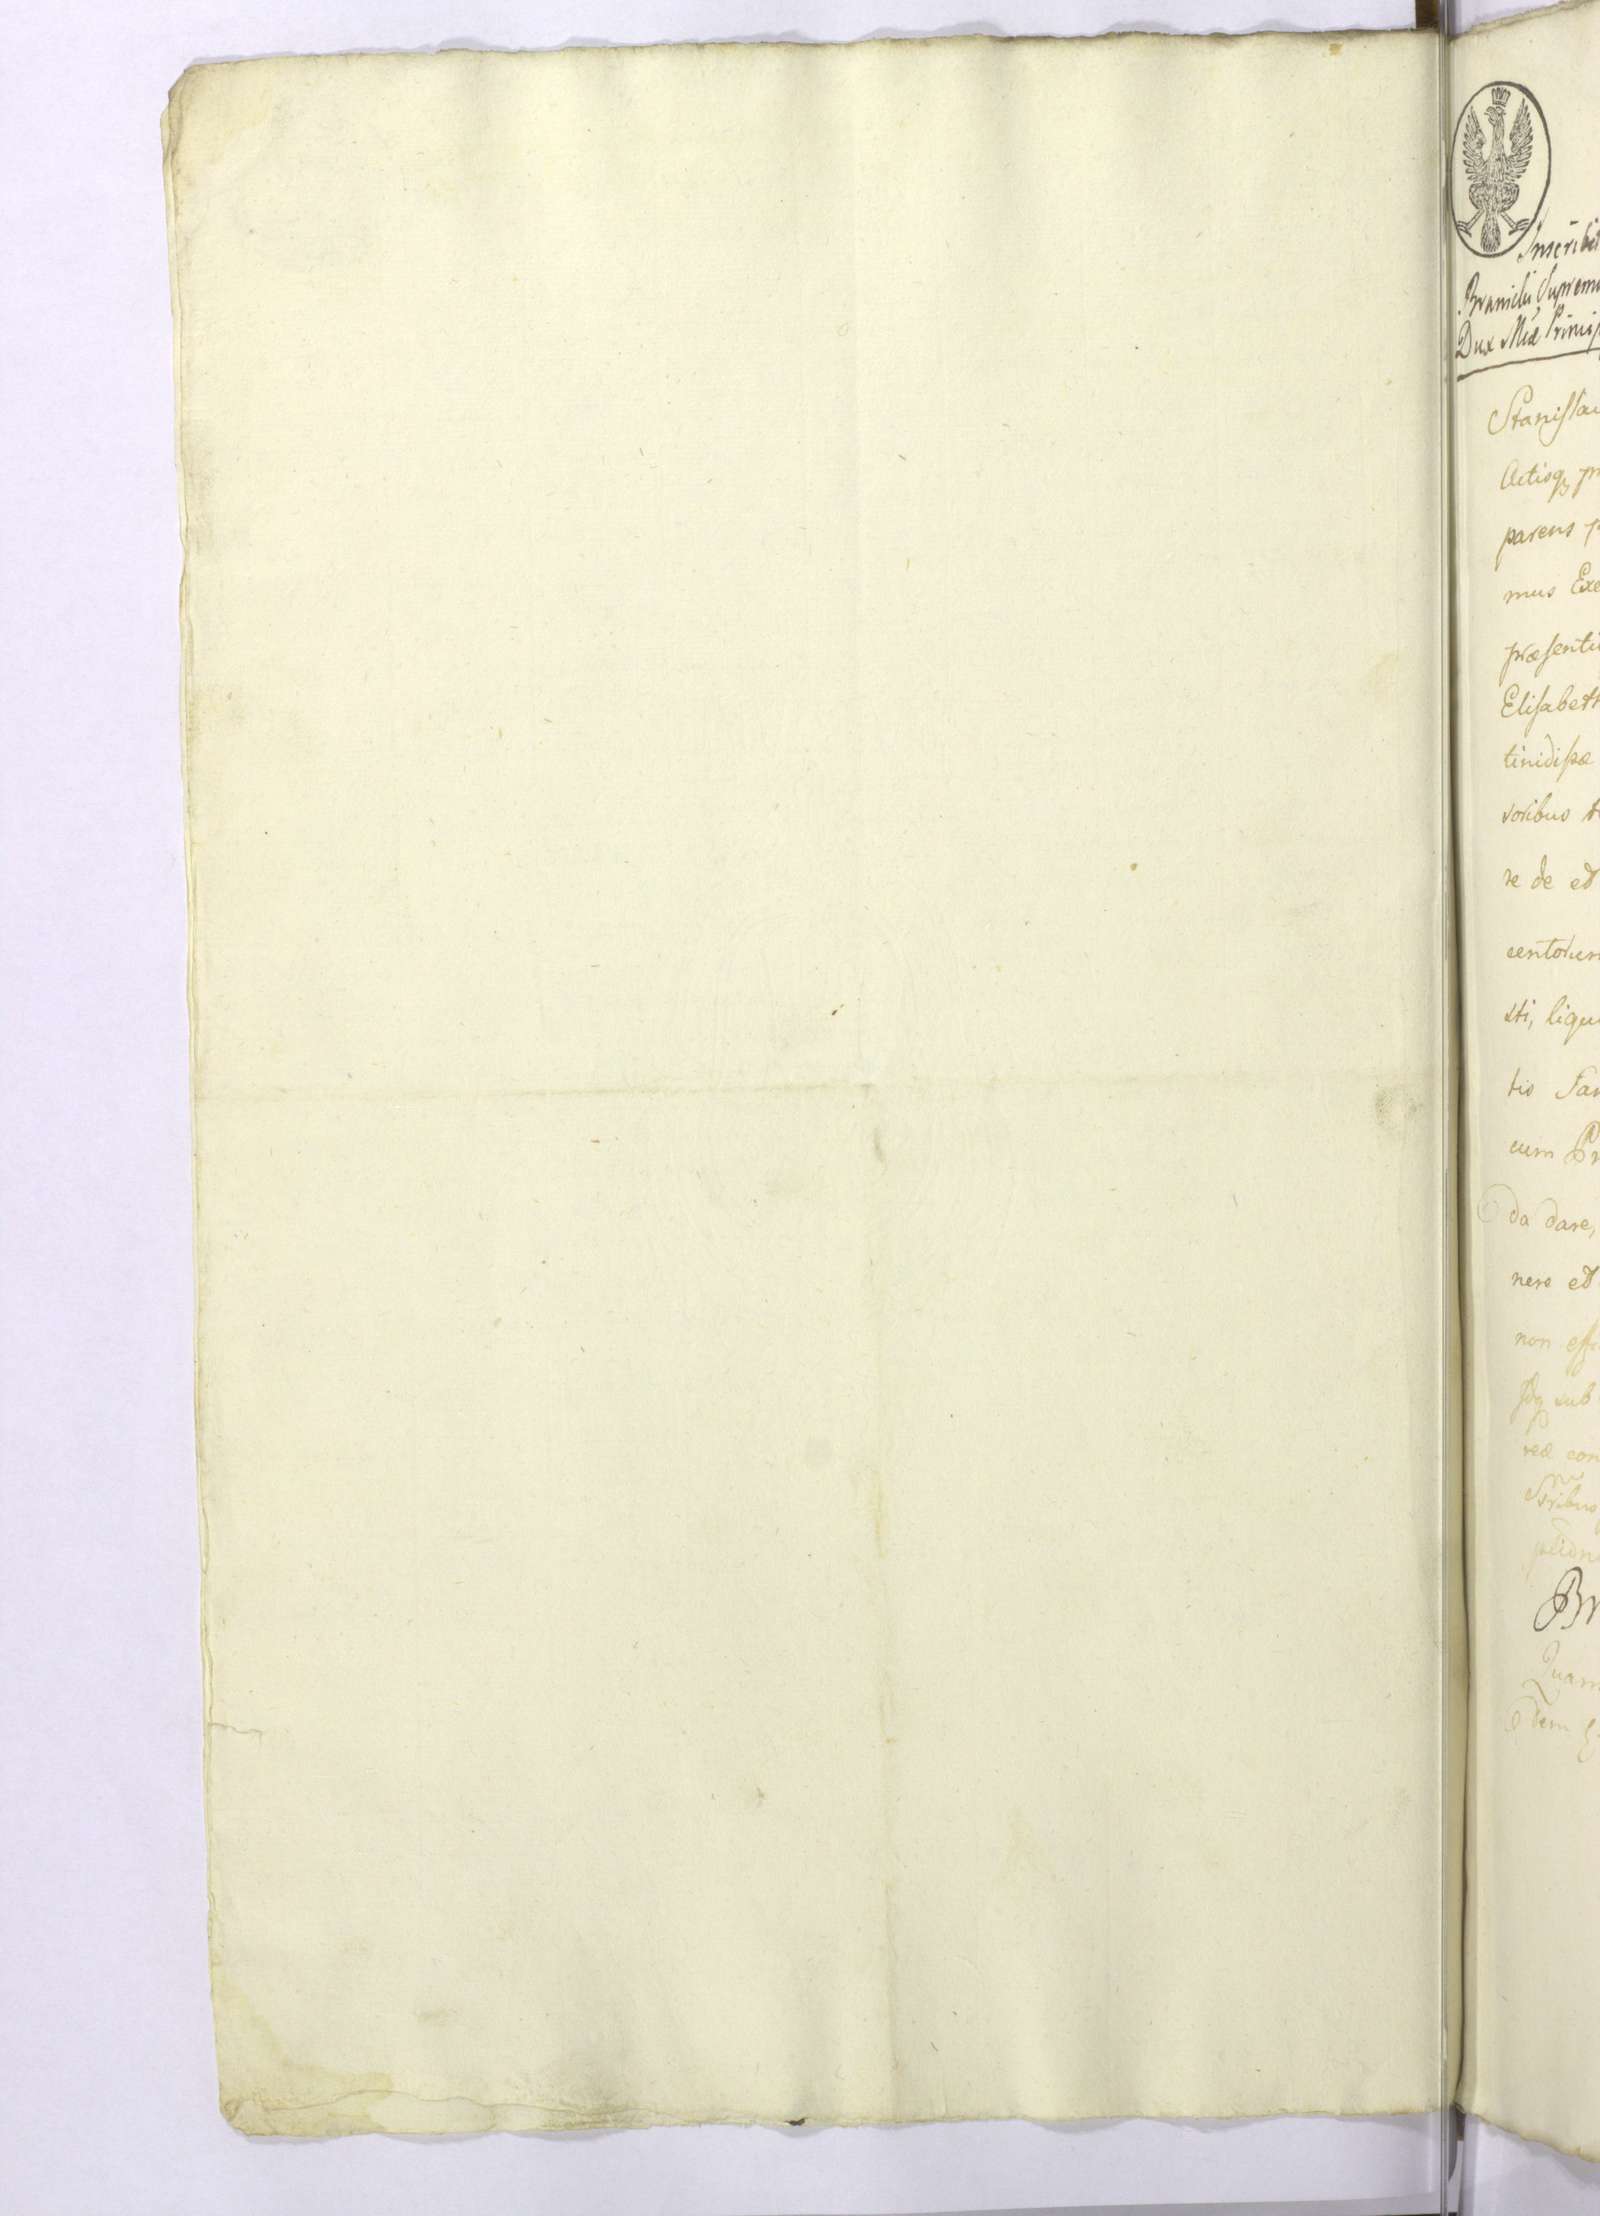 Inscribit
Branicki Supremu
Dux Miae Princip
Stanislau
Actisq, pr
parens p
mus Exe
præsenti
Elisabeth
tinidissæ
soribus
re de et
centorum
sti, liqui
tis San
cum Pr
da dare,
nere et
non esse
sub
reæ con
Br
Quam
dem